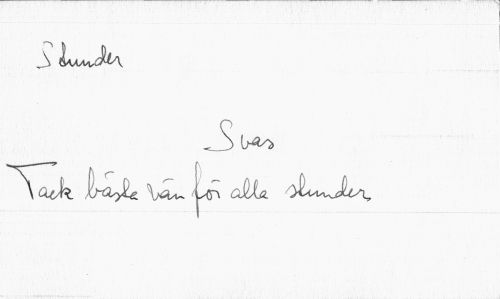 Stunder
Svas
Tack bästa vän för alla stunder